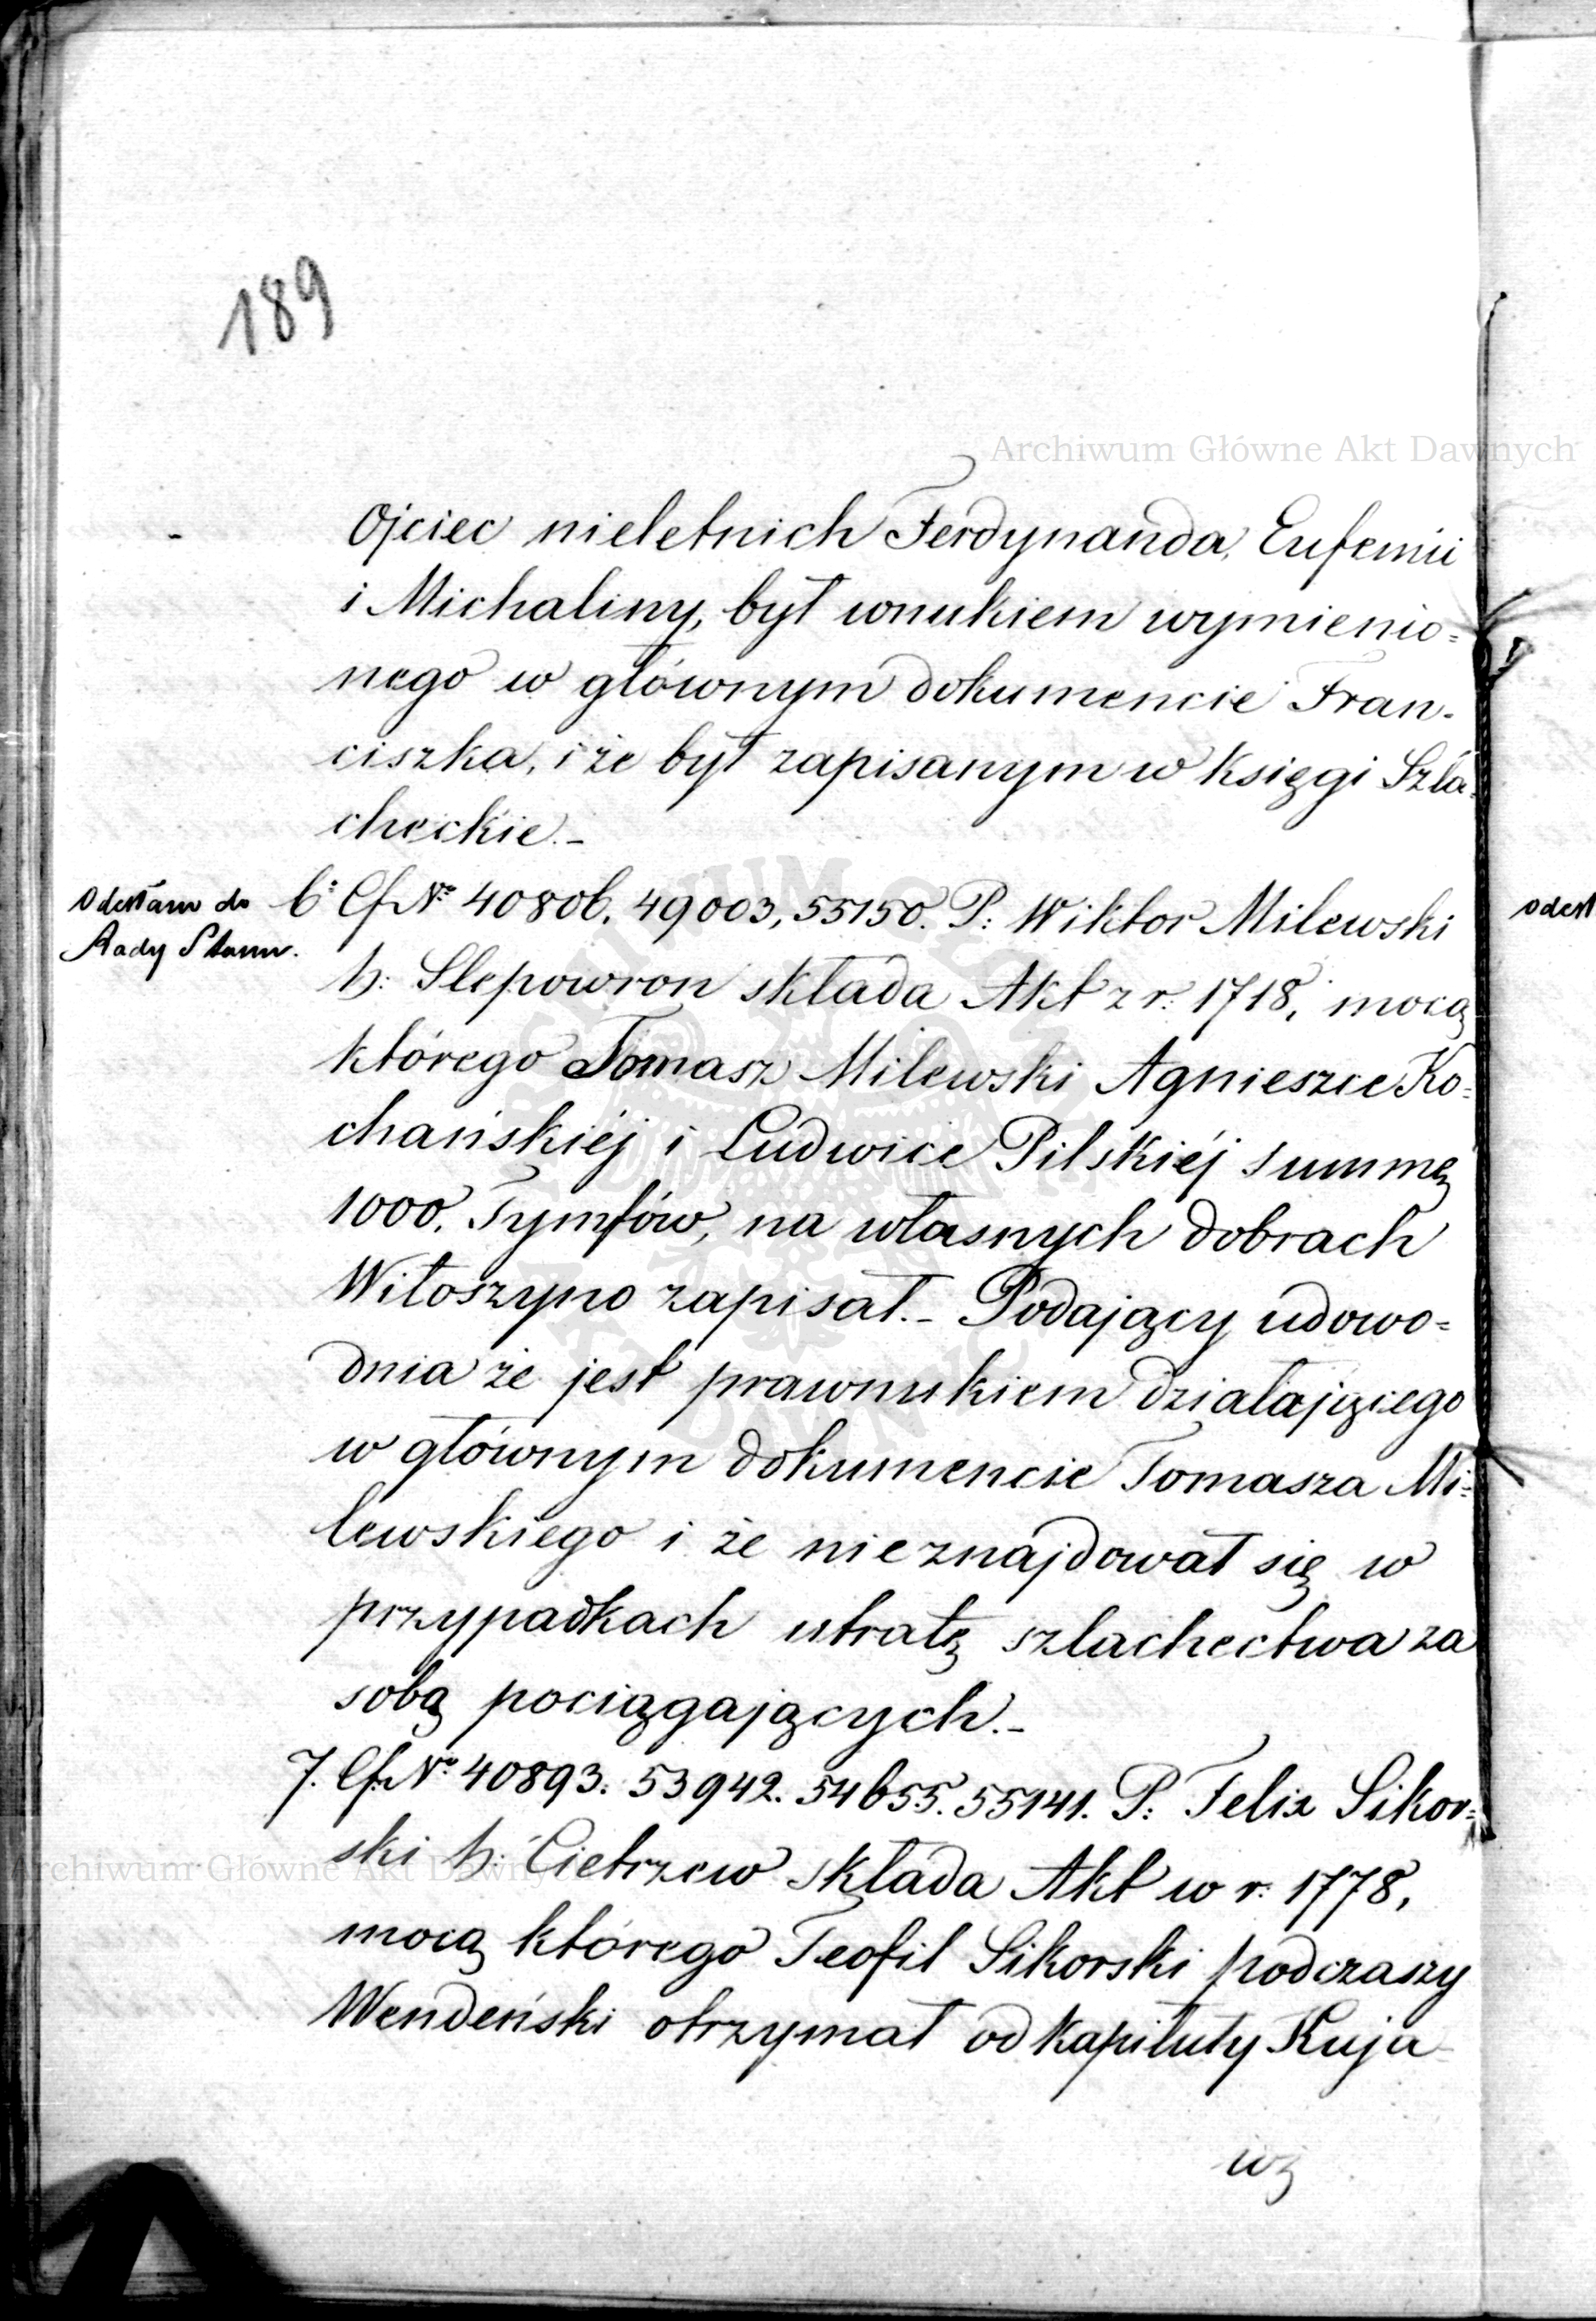 189
Archiwum Główne Akt Dawnych
Ojciec nieletnich Ferdynanda, Eufemii
i Michaliny, był wnukiem wymienio=
nego w głównym dokumencie Fran=
ciszka, i że był zapisanym w Księgi Szla=
checkie.-
Odesłano do
Rady Stanu.
6. Cf. Nº 40806, 49003, 55150. P: Wiktor Milewski
h: Slepowron składa Akt z r: 1718, mocą
którego Tomasz Milewski Agnieszce Ko=
chańskiéj i Ludwice Pilskiéj summę
1000. Tymfów, na własnych dobrach
Witoszyno zapisał.- Podający udowo=
dnia że jest prawnukiem działającego
w głównym dokumencie Tomasza Mi=
lewskiego i że nieznajdował się w
przypadkach utratę szlachectwa za
sobą pociągających.-
7. Cf. Nº 40893. 53942. 54655. 55141. P: Felix Sikor=
ski h: Cietrzew składa Akt w r: 1778,
Archiwum Główne Akt Dawnych
mocą którego Teofil Sikorski podczaszy
Wendeński otrzymał od Kapituły Kuja=